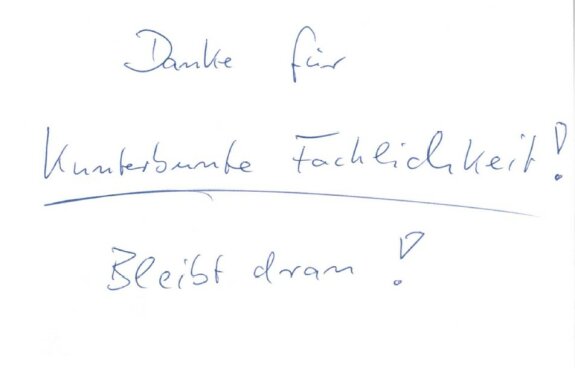 Danke für
Kunterbunte Fachlichkeit!
Bleibt dran!